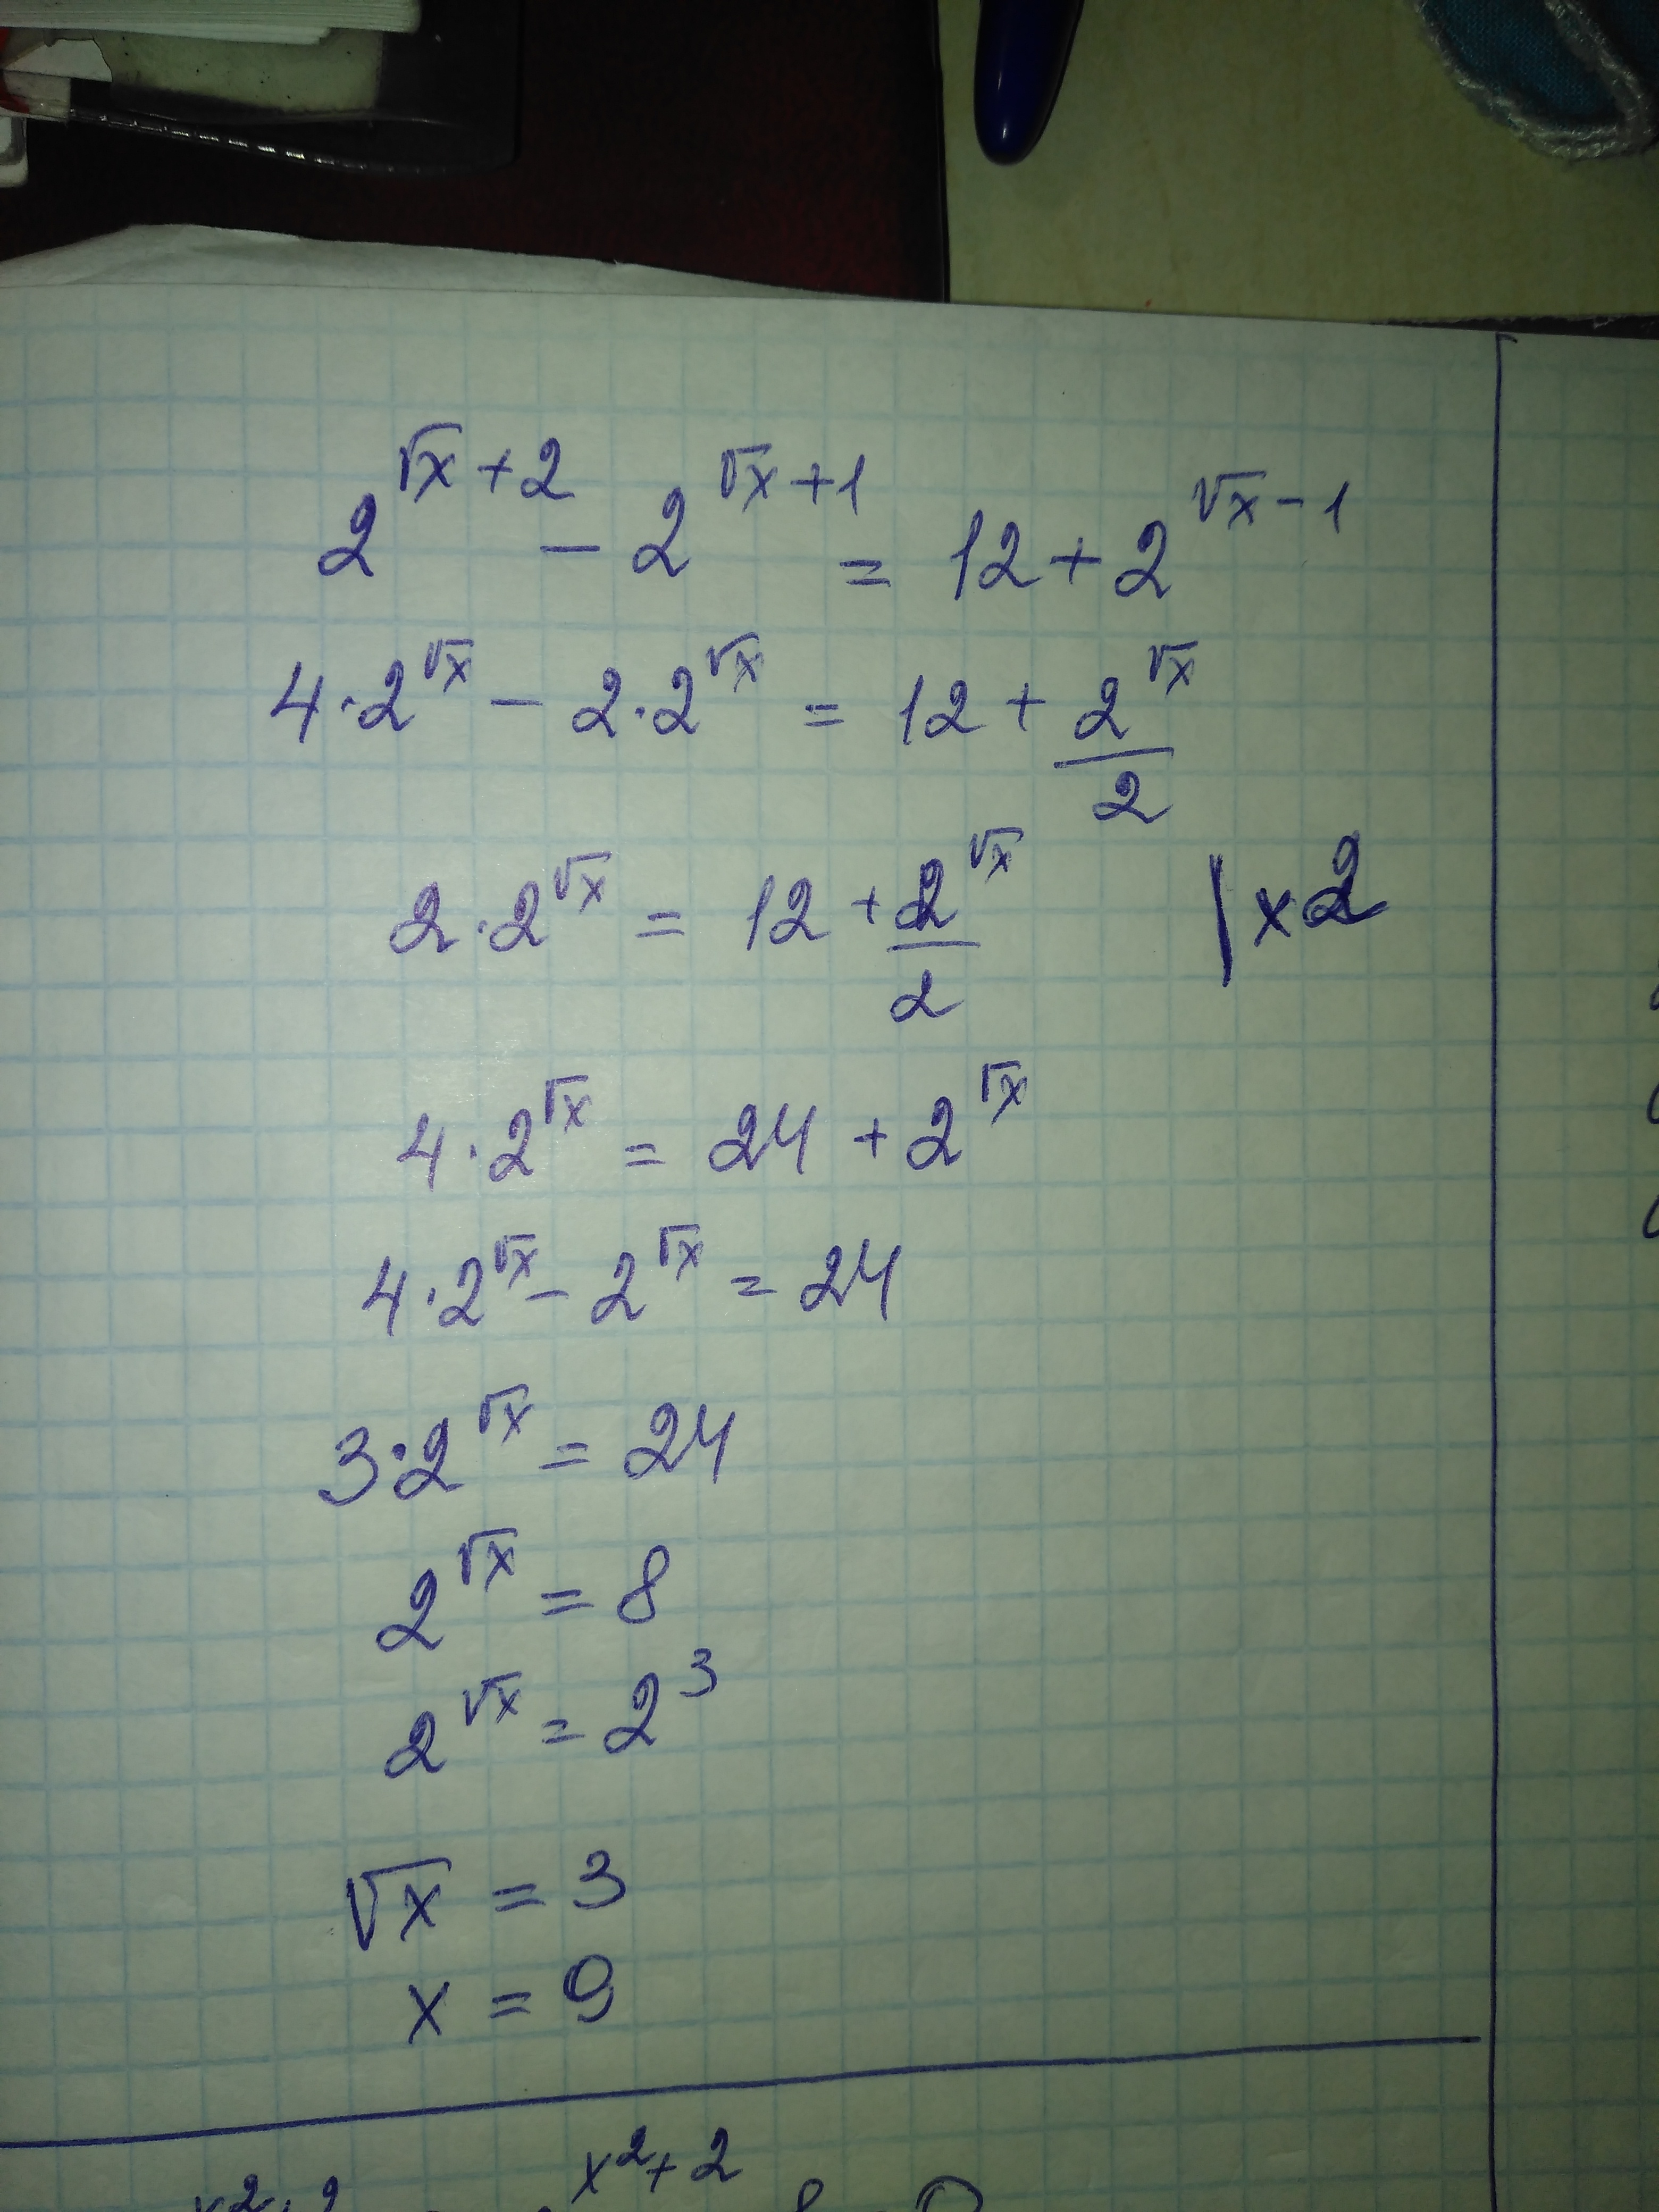 2^{√x+2} − 2^{√x+1} = 12 + 2^{√x−1}
4·2^{√x} − 2·2^{√x} = 12 + \frac{2^{√x}}{2}
2·2^{√x} = 12 + \frac{2^{√x}}{2} | ×2
4·2^{√x} = 24 + 2^{√x}
4·2^{√x} − 2^{√x} = 24
3·2^{√x} = 24
2^{√x} = 8
2^{√x} = 2^3
√x = 3
x = 9
x^2+2